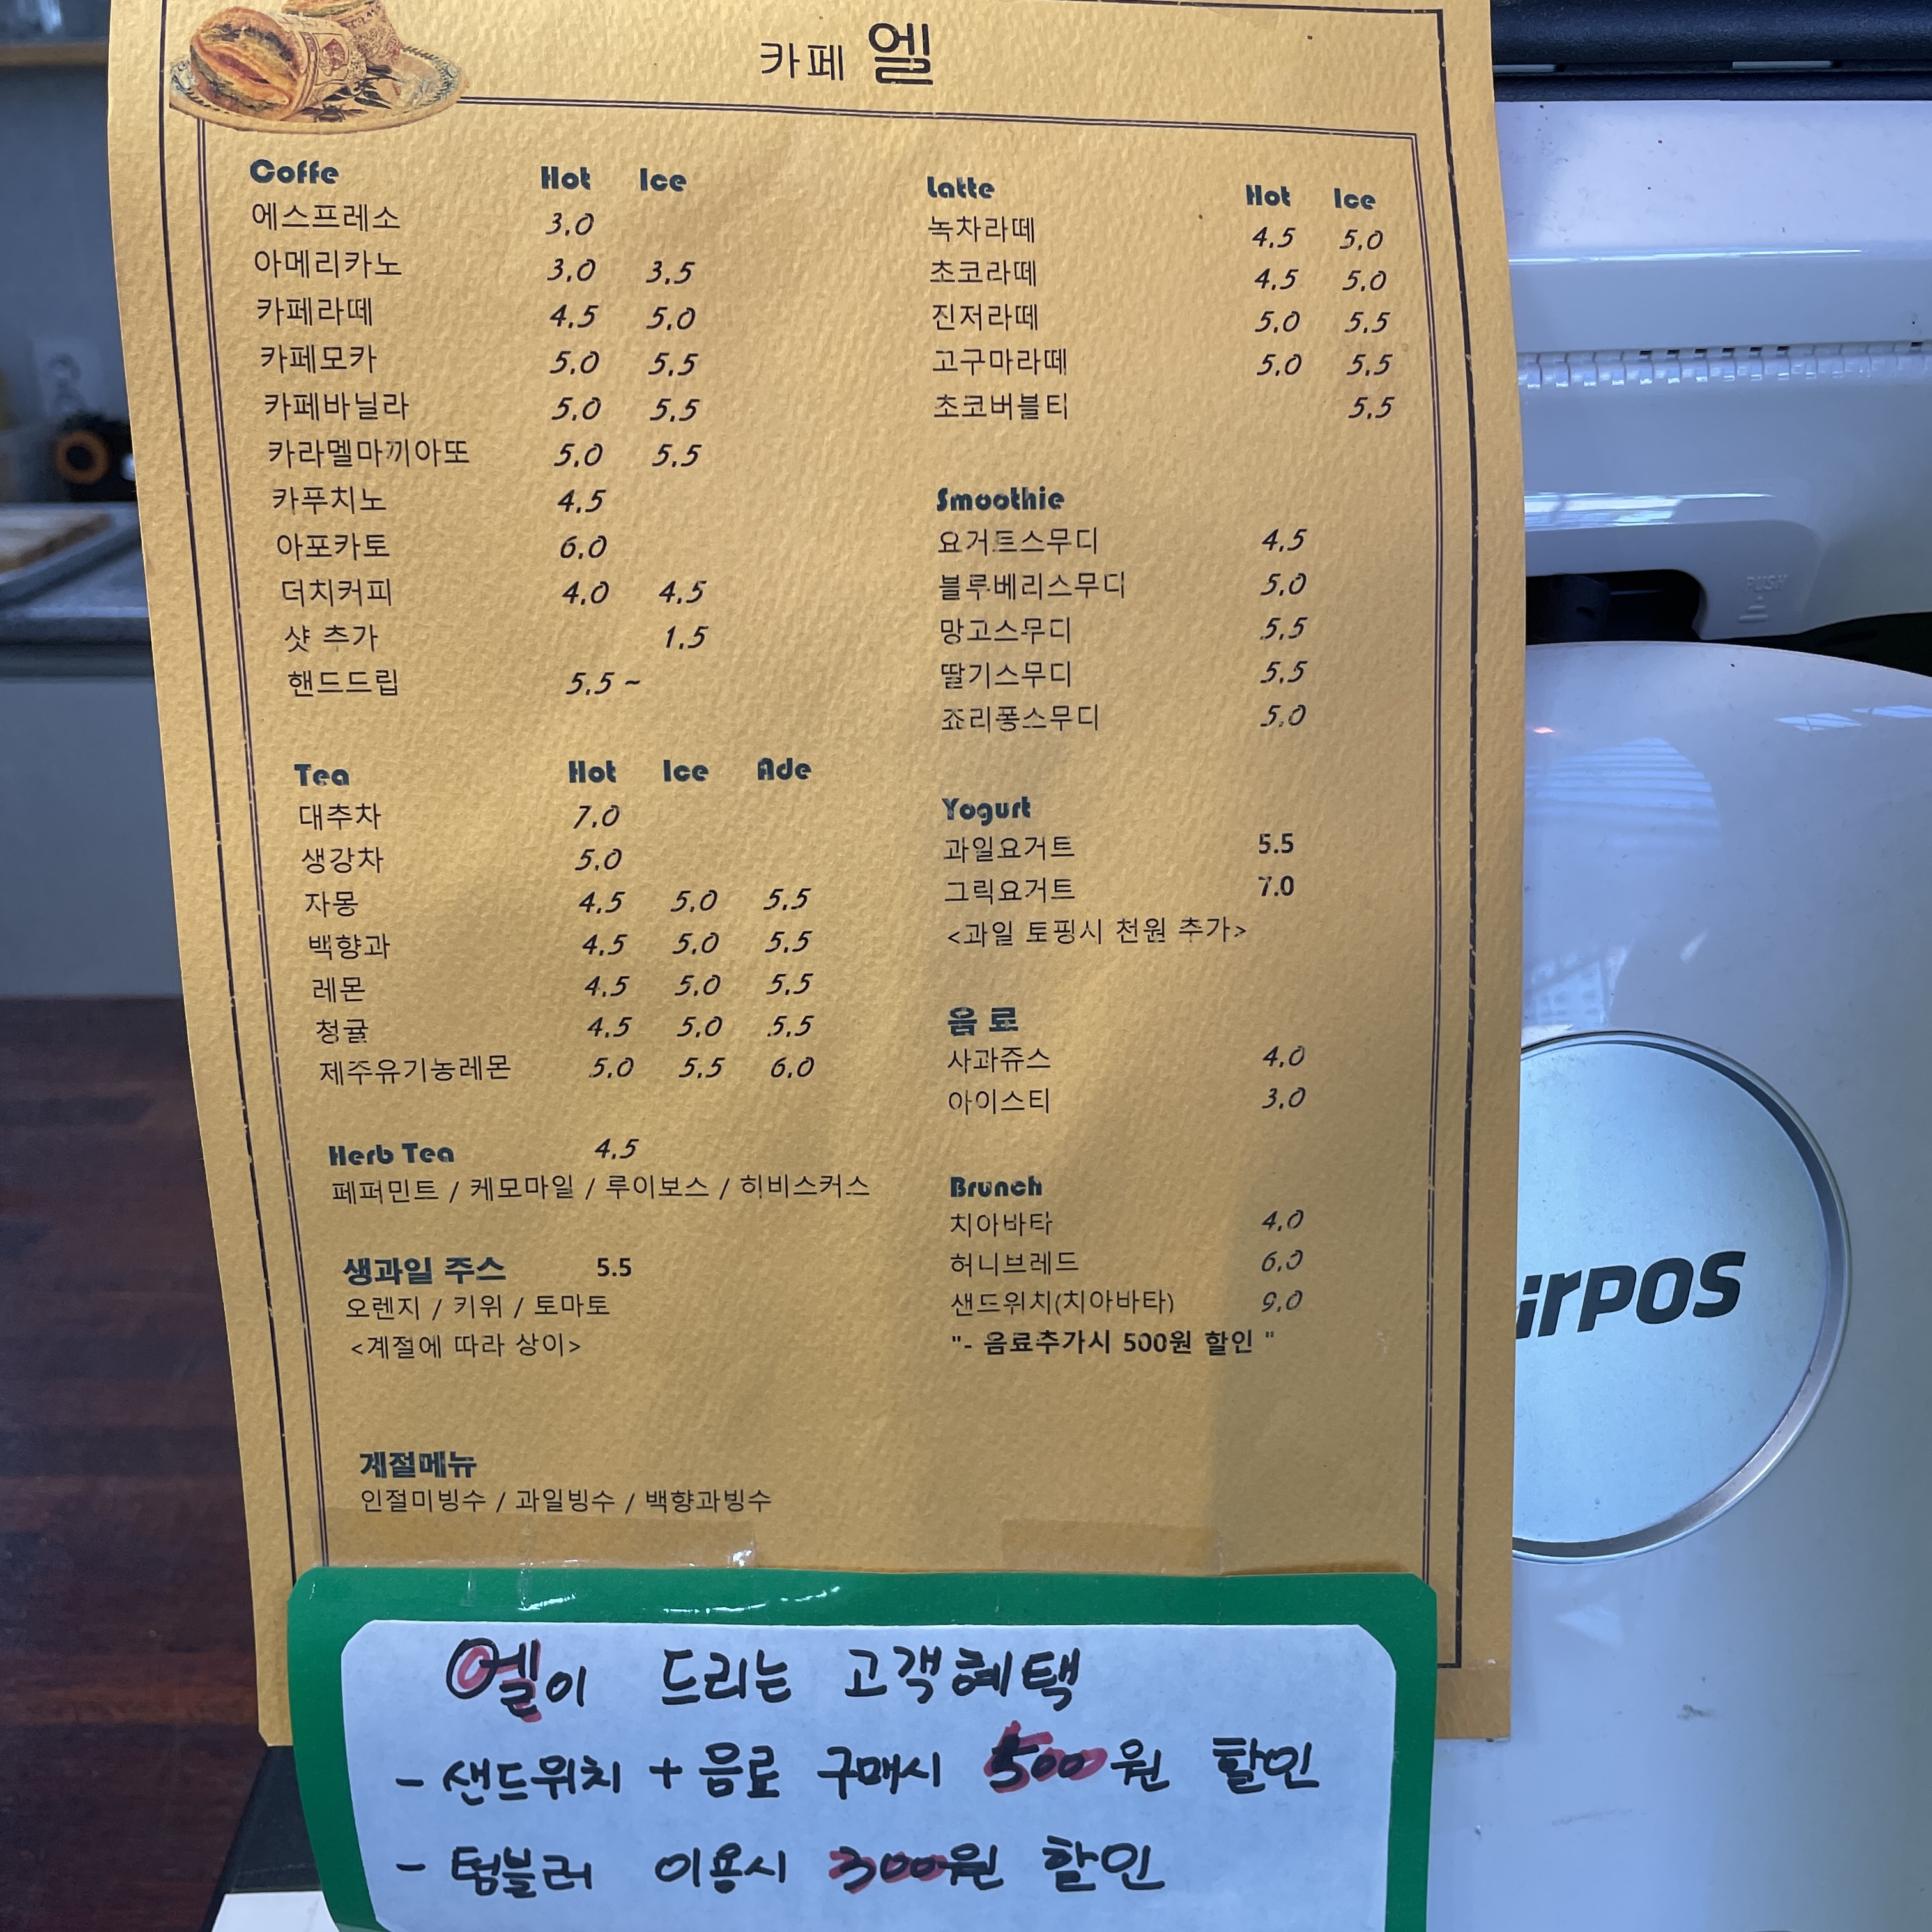 카페 엘
Coffe Hot Ice
에스프레소 3.0
아메리카노 3.0 3.5
카페라떼 4.5 5.0
카페모카 5.0 5.5
카페바닐라 5.0 5.5
카라멜마끼아또 5.0 5.5
카푸치노 4.5
아포카토 6.0
더치커피 4.0 4.5
샷 추가 1.5
핸드드립 5.5 ~
Tea Hot Ice Ade
대추차 7.0
생강차 5.0
자몽 4.5 5.0 5.5
백향과 4.5 5.0 5.5
레몬 4.5 5.0 5.5
청귤 4.5 5.0 5.5
제주유기농레몬 5.0 5.5 6.0
Herb Tea 4.5
페퍼민트 / 케모마일 / 루이보스 / 히비스커스
생과일 주스 5.5
오렌지 / 키위 / 토마토
<계절에 따라 상이>
계절메뉴
인절미빙수 / 과일빙수 / 백향과빙수
Latte Hot Ice
녹차라떼 4.5 5.0
초코라떼 4.5 5.0
진저라떼 5.0 5.5
고구마라떼 5.0 5.5
초코버블티 5.5
Smoothie
요거트스무디 4.5
블루베리스무디 5.0
망고스무디 5.5
딸기스무디 5.5
죠리퐁스무디 5.0
Yogurt
과일요거트 5.5
그릭요거트 7.0
<과일 토핑시 천원 추가>
음 료
사과쥬스 4.0
아이스티 3.0
Brunch
치아바타 4.0
허니브레드 6.0
샌드위치(치아바타) 9.0
"- 음료추가시 500원 할인 "
엘이 드리는 고객혜택
- 샌드위치 + 음료 구매시 500원 할인
- 텀블러 이용시 300원 할인
PUSH
irPOS